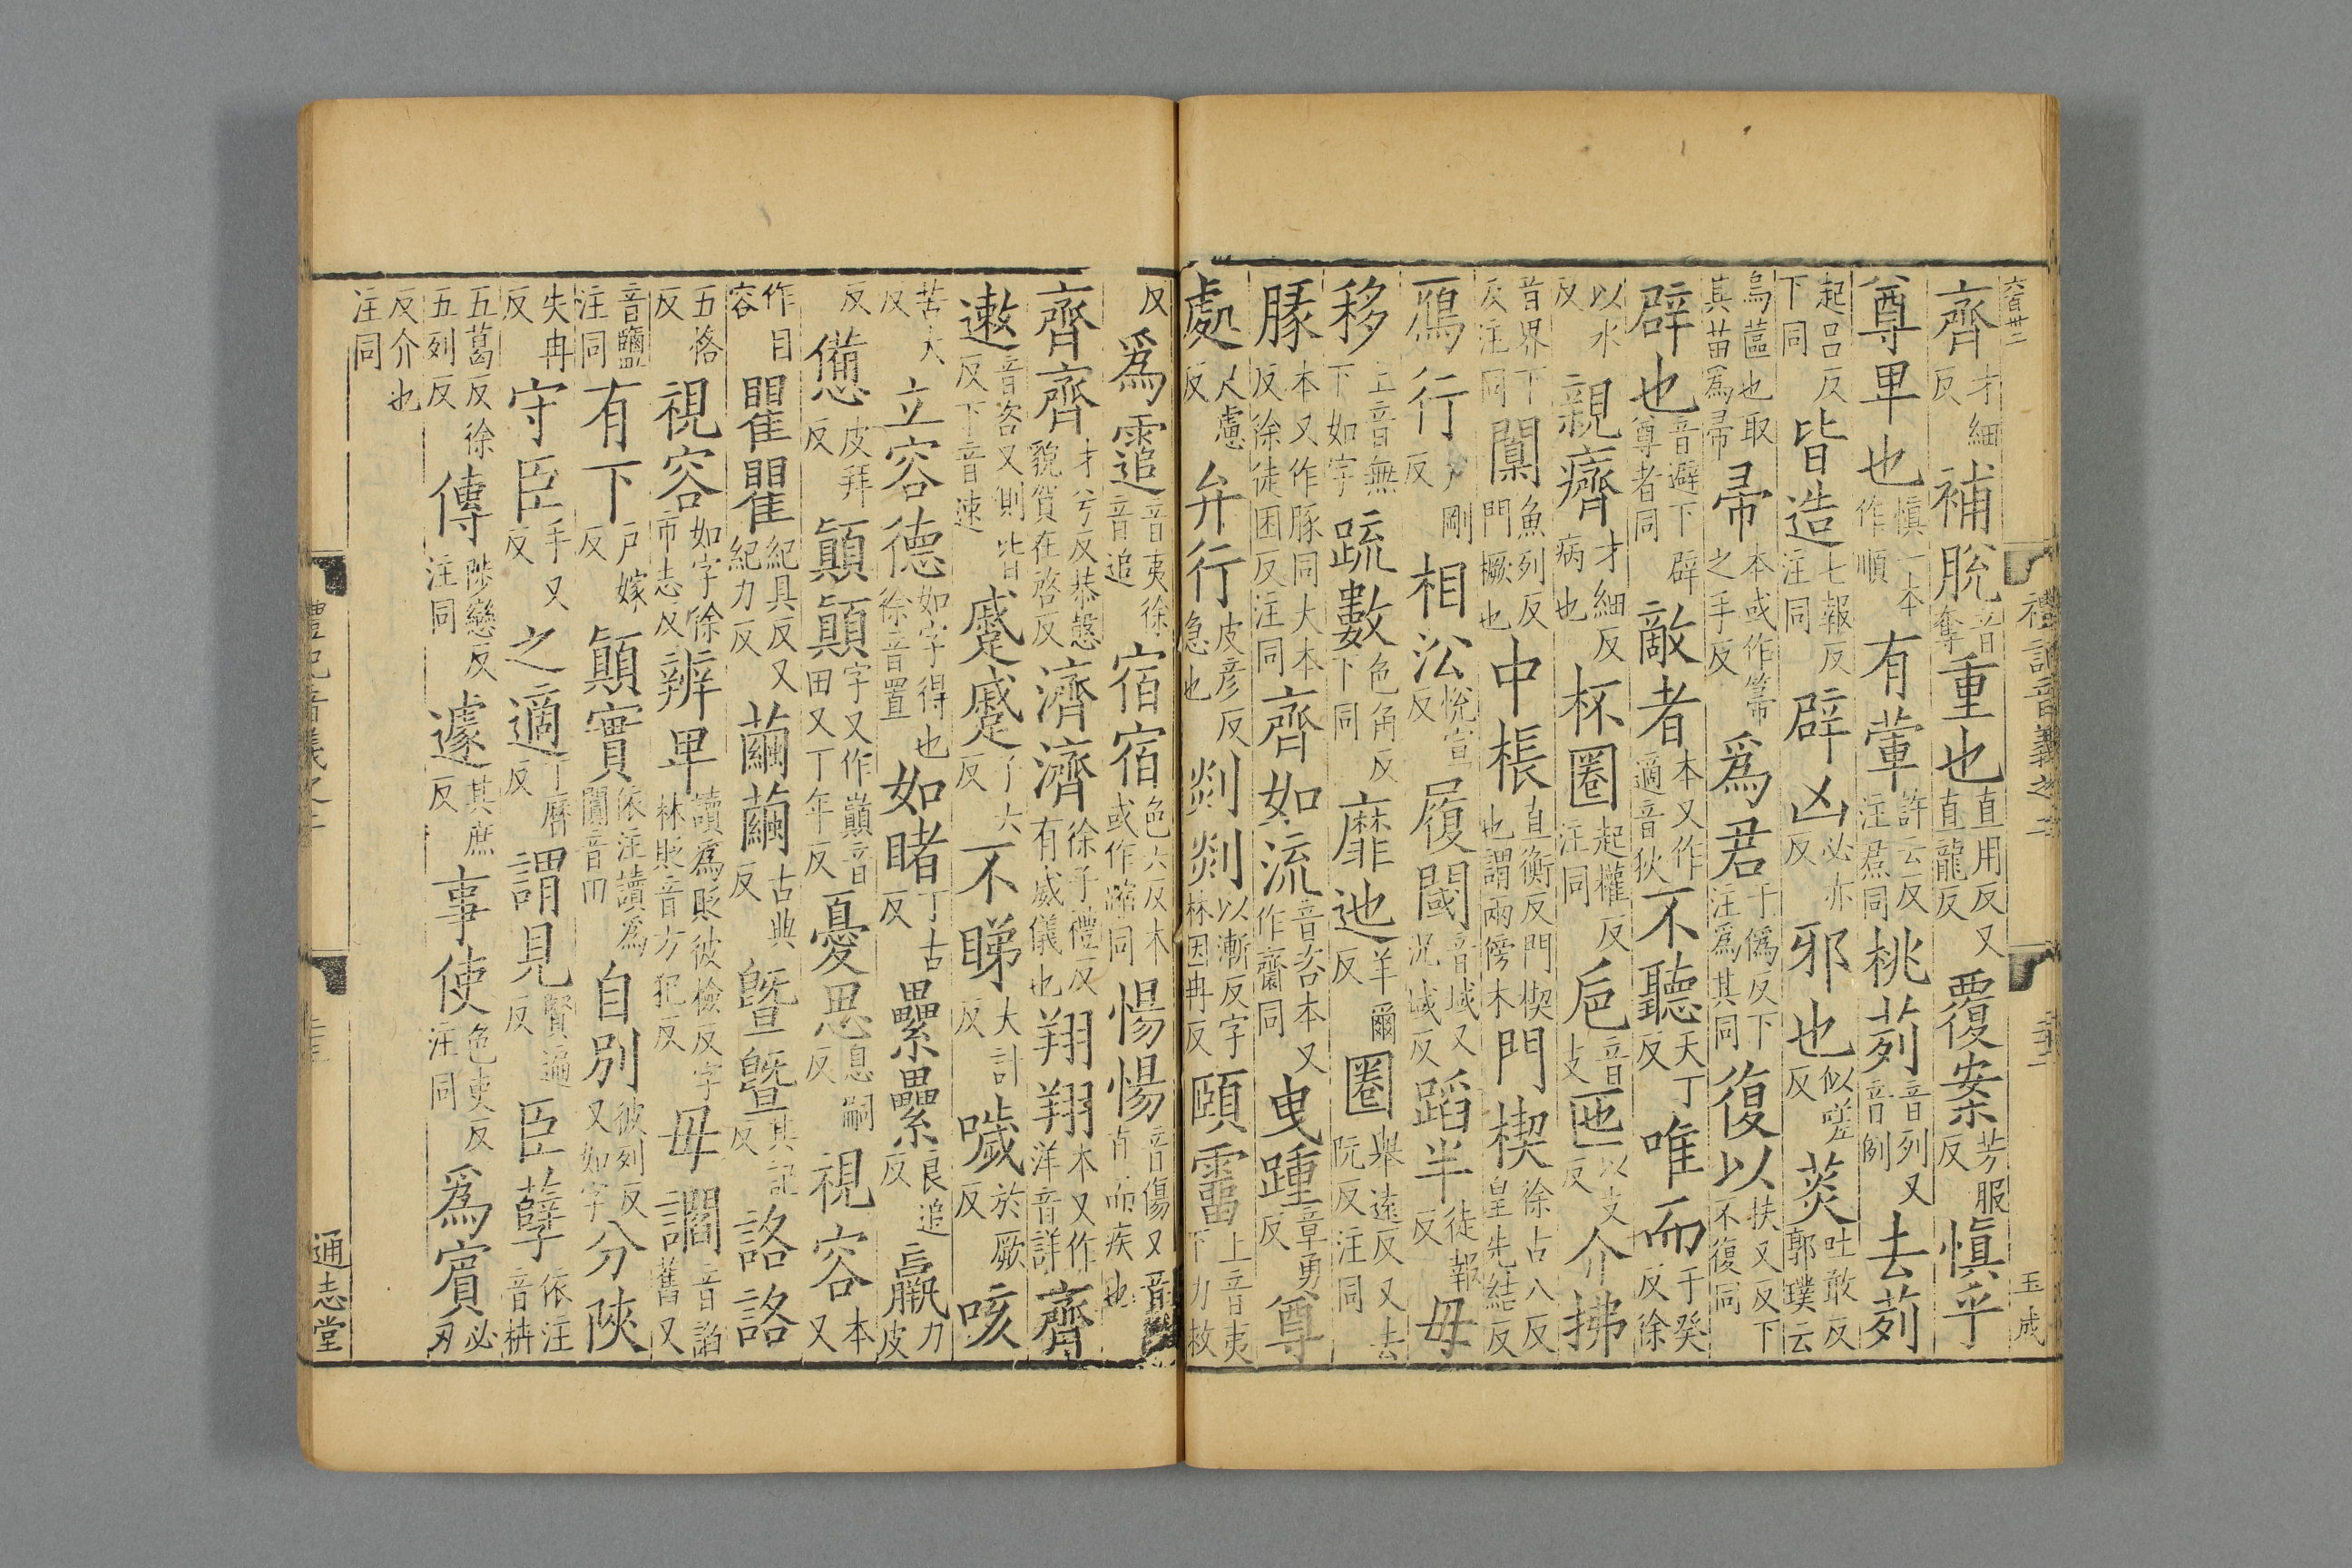 六百卅二
禮記音義之二
玉成
齊才細反補脫音奪重也直用反又直龍反覆案芳服反愼乎
尊卑也愼一本作順有葷許云反注焄同桃茢音列又音例去茢
起呂反下同皆造七報反注同辟凶必亦反邪也似嗟反菼吐敢反郭璞云
烏蓲也取其苗爲帚帚本或作箒之手反爲君于僞反下注爲其同復以扶又反下不復同
辟也音避下辟尊者同敵者本又作適音狄不聽天丁反唯而于癸反徐
以水反親癠才細反病也杯圈起權反注同巵音支匜以支反介拂
音界下及注同闑魚列反門橛也中棖直衡反門楔也謂兩傍木門楔徐古八反皇先結反
鴈行戶剛反相㳂悅宣反履閾音域又況域反蹈半徒報反毋
移上音無下如字疏數色角反下同靡迆羊爾反圈舉遠反又去阮反注同
豚本又作豚同大本反徐徒困反注同齊如流音咨本又作齏同曳踵章勇反尊
處尺慮反弁行皮彥反急也剡剡以漸反字林因冉反頤霤上音夷下力救
反爲霣音夷徐音追宿宿色六反本或作縮同惕惕音傷又音
齊齊才兮反恭慤貌賀在啓反濟濟徐子禮反有威儀也翔翔本又作洋音詳齊
遫音咨又則皆反下音速蹙蹙子六反不睇大計反噦於厥反咳
苦大反立容德如字得也徐音置如睹丁古反纍纍良追反羸力皮
反憊皮拜反顚顚字又作巓音田又丁年反憂思息嗣反視容本又
作目容瞿瞿紀具反又紀力反繭繭古典反曁曁其記反詻詻
五格反視容如字徐市志反辨卑讀爲貶彼檢反字林貶音方犯反毋讇音諂舊又
音鹽注同有下戶嫁反顚實依注讀爲闐音田自別彼列反又如字分陝
失冉反守臣手又反之適丁曆反謂見賢遍反臣孽依注音枿
五葛反徐五列反傳陟戀反注同遽其庶反事使色吏反注同爲賓必刃
反介也注同
禮記音義之二
通志堂